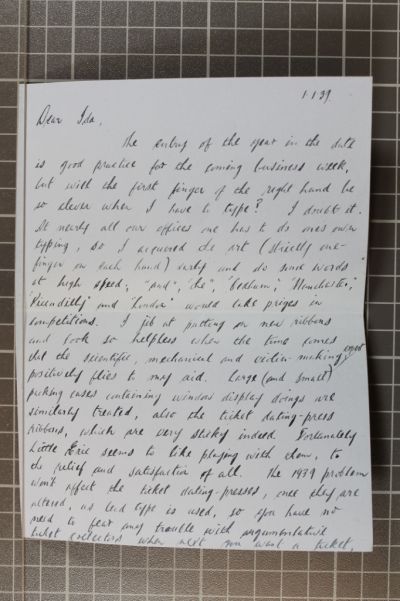 1.1.39.
Dear Ida,
The entry of the year in the date
is good practice for the coming business week,
but will the first finger of the right hand be
so clever when I have to type? I doubt it.
At nearly all our offices one has to do ones own
typing, so I acquired the art (strictly one-
finger on each hand) early and do some words
at high speed; "and", "the", "Oldham", "Manchester",
"Piccadilly" and "London" would take prizes in
competitions. I jib at putting on new ribbons
and look so helpless when the time comes
that the scientific, mechanical and violin-making expert
positively flies to my aid. Large (and small)
packing cases containing window display doings are
similarly treated, also the ticket dating-press
ribbons, which are very sticky indeed. Fortunately
Little Eric seems to like playing with them, to
the relief and satisfaction of all. The 1939 problem
won't affect the ticket dating-presses, once they are
altered, as lead type is used, so you have no
need to fear any trouble with argumentative
ticket collectors when next you want a ticket.